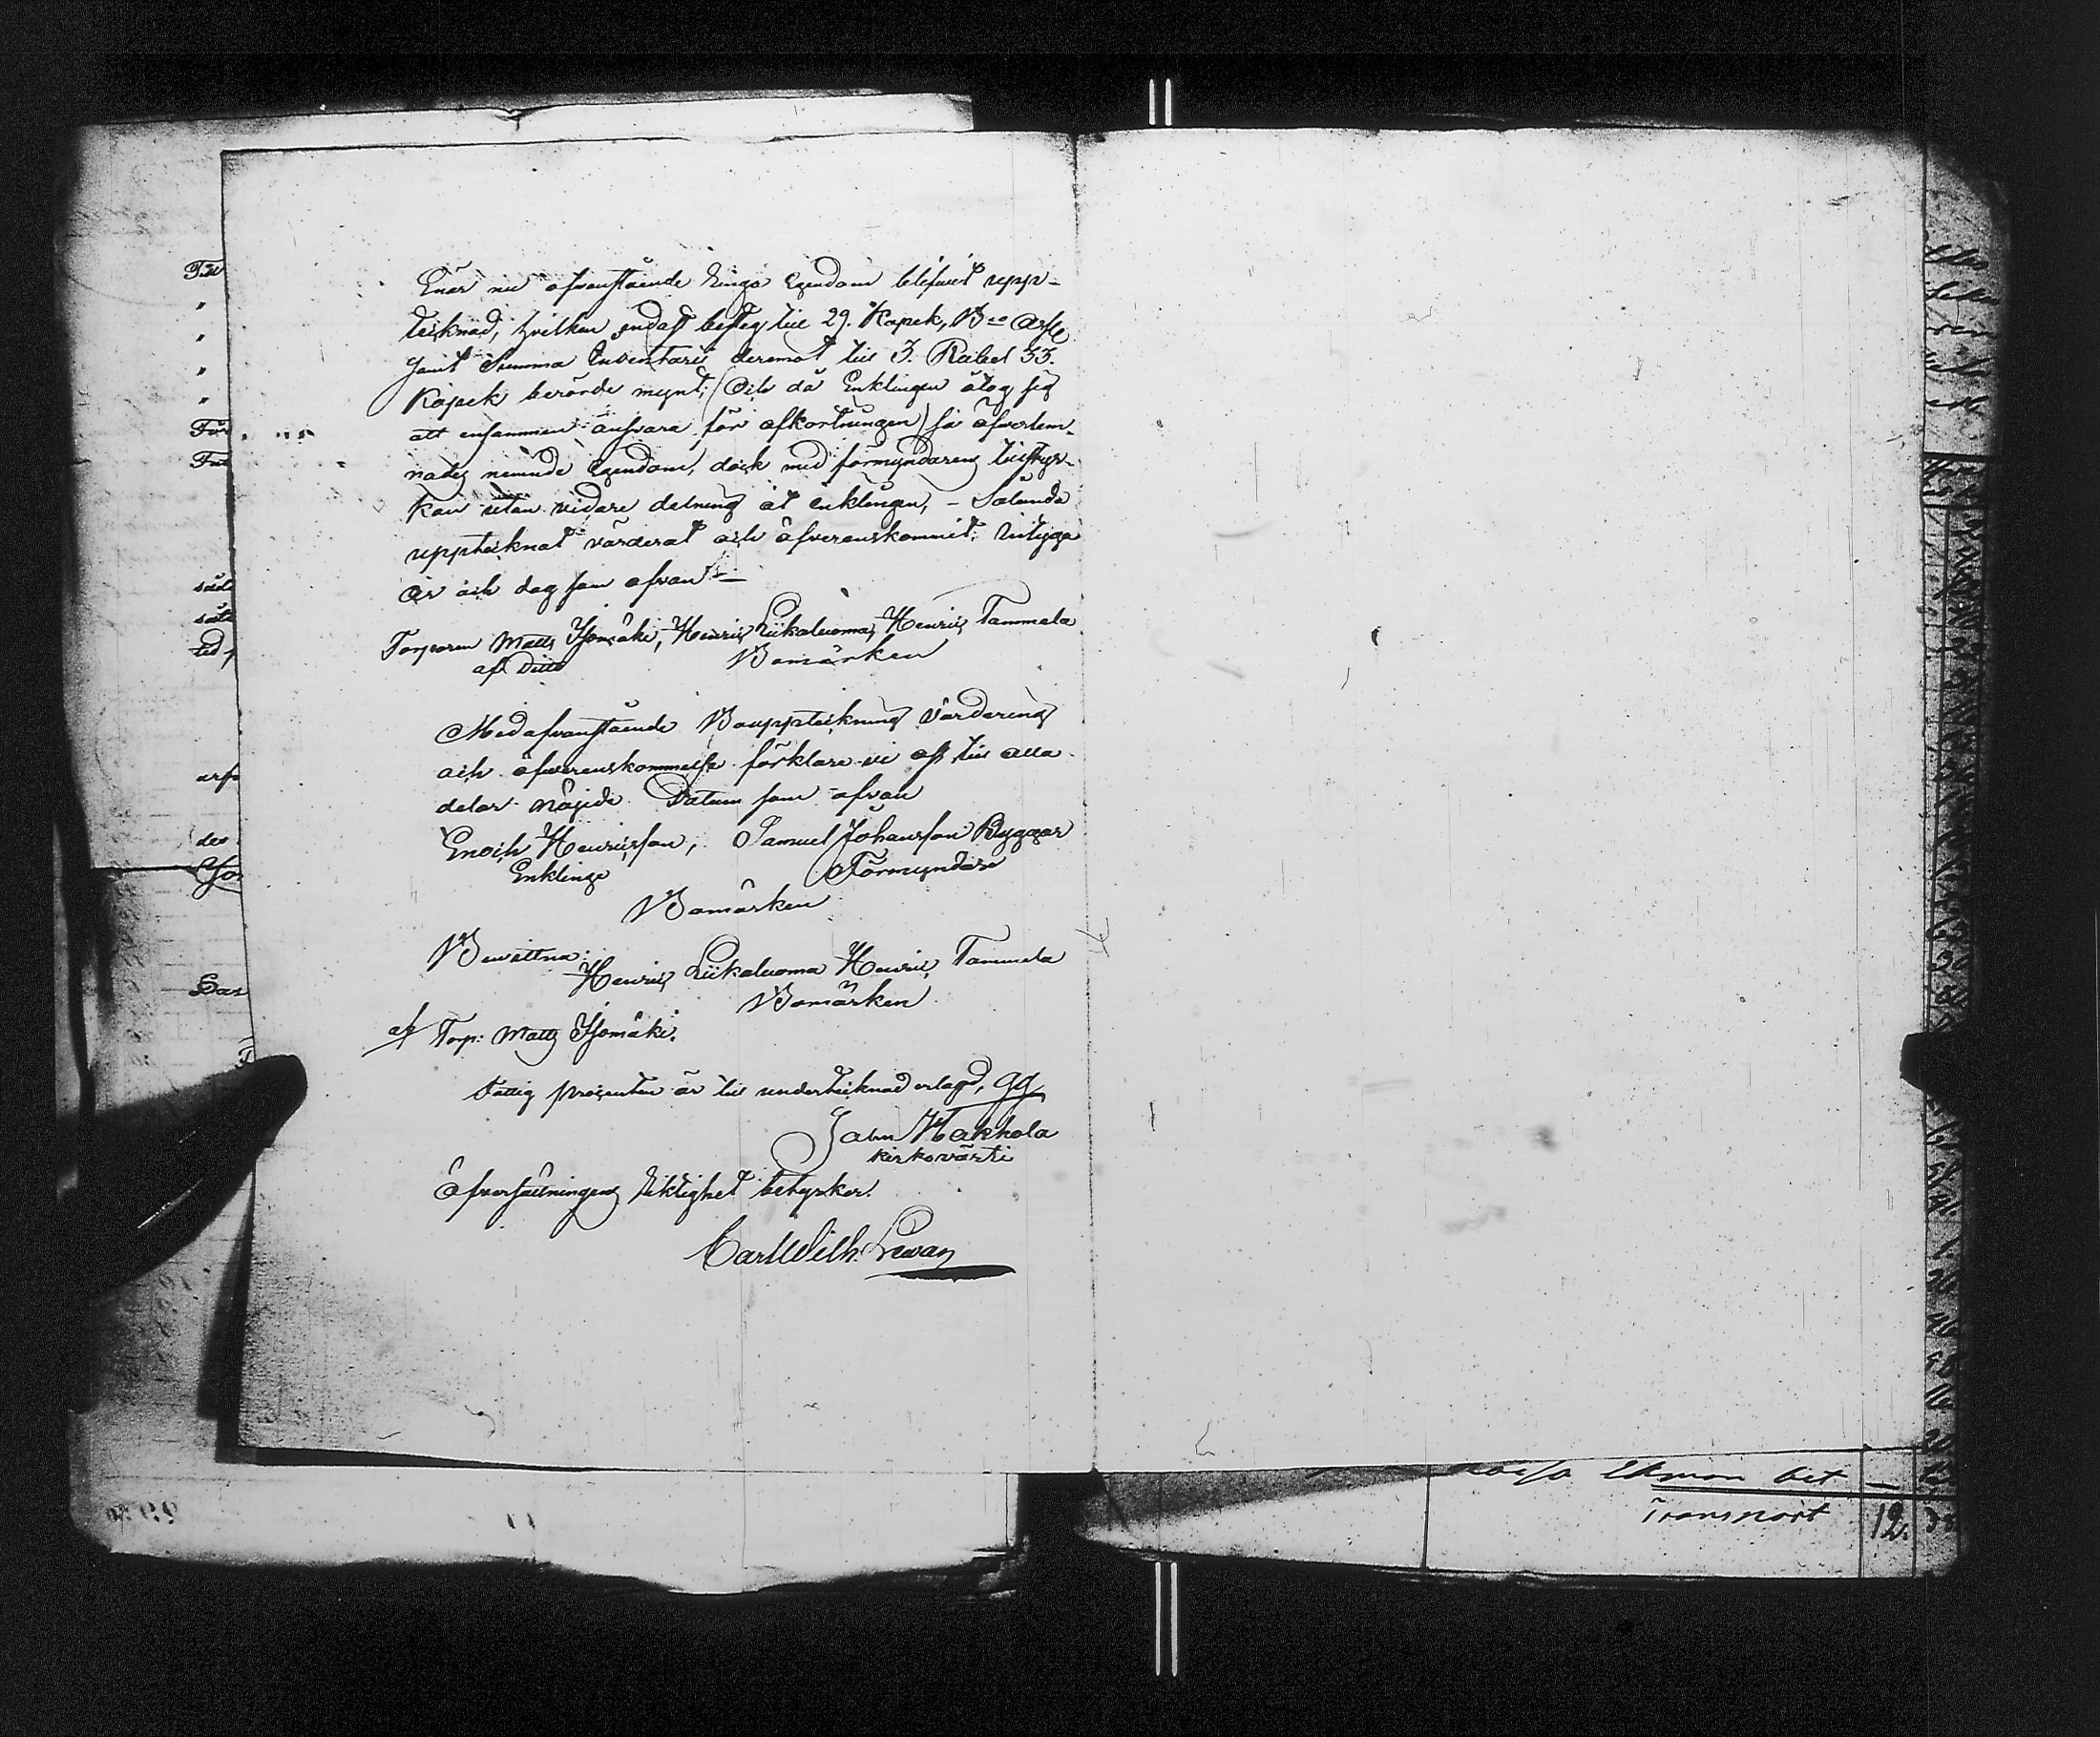 Enär nu ofvanstående ringa Egendom blifvit upp-
tecknad, hvilken endast besteg till 29. Kopek, B:co Ass
samt Summa Inventarii deremot till 3. Rubel 33.
Kopek berörde mynt; (Och då Enklingen åtog sig
att ensammen ansvara för afkortningen) så öfverlem-
nades nemnde Egendom, dock med förmyndarens tillstyr-
kan utan vidare delning åt enklingen, – Sålunda
upptecknat värderat och öfverenskommit, betyga
År och dag som ofvan –
Torparen Matts Isomäki, Henric Liikaluoma, Henric Tammela
af Ditto Bomärken
Med ofvanstående Bouppteckning Värdering
och öfverenskommelse förklare vi oss till alla
delar nöjde Datum som ofvan
Enoch Henricsson, Samuel Johansson Byggar
Enklinge Förmyndare
Bomärken
Bevittna:
Henric Liikaluoma Henric Tammela
Bomärken
af Torp: Matts Isomäki.
Fattig procenten är till undertecknad erlagd,
Jahn Hakkola
kirkovärti
Öfversättningens riktighet betyrker.
Carl Wilh.
Tid
"
"
"
"
För
sist
arf
des
Transport 12.